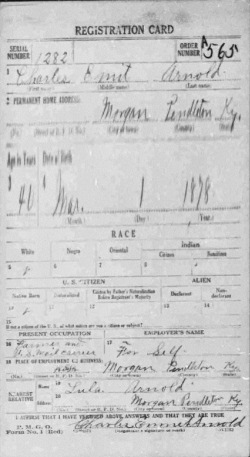 REGISTRATION CARD
SERIAL NUMBER 1282 ORDER NUMBER A565
1 Charles Emit Arnold
(First name) (Middle name) (Last name)
2 PERMANENT HOME ADDRESS:
Morgan Pendleton Ky.
(No.) (City or town) (County) (State)
Age in Years Date of Birth
3 40 4 Mar. 1 1878
(Month.) (Day.) (Year.)
RACE
White Negro Oriental Indian
Citizen Noncitizen
5 6 7 8 9
U. S. CITIZEN ALIEN
Native Born Naturalized Citizen by Father's Naturalization Before Registrant's Majority Declarant Non-declarant
10 11 12 13 14
15 If not a citizen of the U. S., of what nation are you a citizen or subject?
PRESENT OCCUPATION EMPLOYER'S NAME
16 Farmer and U.S. Mail carrier 17 For Self
18 PLACE OF EMPLOYMENT OR BUSINESS:
Morgan Pendleton Ky.
NEAREST RELATIVE Name 19 Lula Arnold
Address 20 Morgan Pendleton Ky.
I AFFIRM THAT I HAVE VERIFIED ABOVE ANSWERS AND THAT THEY ARE TRUE
P. M. G. O.
Form No. 1 (Red) Charles Emmit Arnold